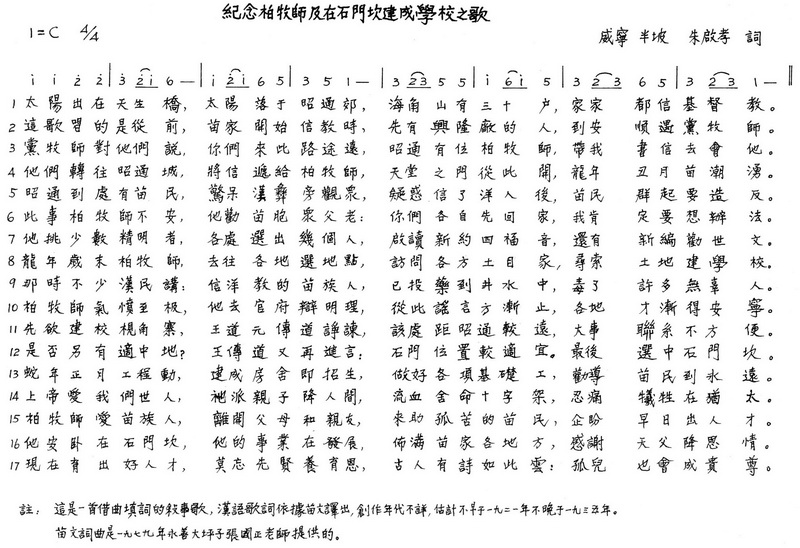 紀念柏牧師及在石門坎建成學校之歌
1=C 4/4 威寧 半坡 朱啟孝 詞
i i 2 2 | 3 2i 6 — | i 2i 6 5 | 3 5 1 — | 3 23 5 5 | i 6i 5 — | 3 23 6 5 | 3 23 1 — ||
1 太陽出在天生橋，太陽落于昭通郊，海南山有三十户，家家都信基督教。
2 這歌唱的是從前，苗家開始信教時，先有興隆廠的人，到安順遇黨牧師。
3 黨牧師對他們說，你們來此路途遠，昭通有位柏牧師，帶我書信去會他。
4 他們轉往昭通城，將信遞給柏牧師，天堂之門從此開，龍年丑月苗潮湧。
5 昭通到處有苗民，驚呆漢彝旁觀眾，疑惑信了洋人後，苗民群起要造反。
6 此事柏牧師不安，他勸苗胞眾父老：你們各自先回家，我肯定要想辦法。
7 他挑少數精明者，各處選出幾個人，啟讀新約四福音，還有新編勸世文。
8 龍年歲末柏牧師，去往各地選地點，訪問各方土目家，尋索土地建學校。
9 那時不少漢民講：信洋教的苗族人，已投藥到井水中，毒了許多無辜人。
10 柏牧師氣憤至極，他去官府辯明理，從此謠言方漸止，各地才漸得安寧。
11 先欲建校視角寨，王道元傳道諍諫，該處距昭通較遠，大事聯系不方便。
12 是否另有適中地？王傳道又再進言：石門位置較適宜。最後選中石門坎。
13 蛇年正月工程動，建成房舍即招生，做好各項基礎工，勸導苗民到永遠。
14 上帝愛我們世人，祂派親子降人間，流血舍命十字架，忍痛犧牲在猶太。
15 柏牧師愛苗族人，離開父母和親友，來助孤苦的苗民，企盼早日出人才。
16 他安卧在石門坎，他的事業在發展，佈滿苗家各地方，感謝天父降恩情。
17 現在有出好人才，莫忘先賢養育恩，古人有詩如此雲：孤兒也會成貴尊。
註：這是一首借曲填詞的敍事歌，漢語歌詞依據苗文譯出，創作年代不詳，估計不早于一九二一年不晚于一九三五年。
苗文詞曲是一九七九年永善大坪子張國正老師提供的。